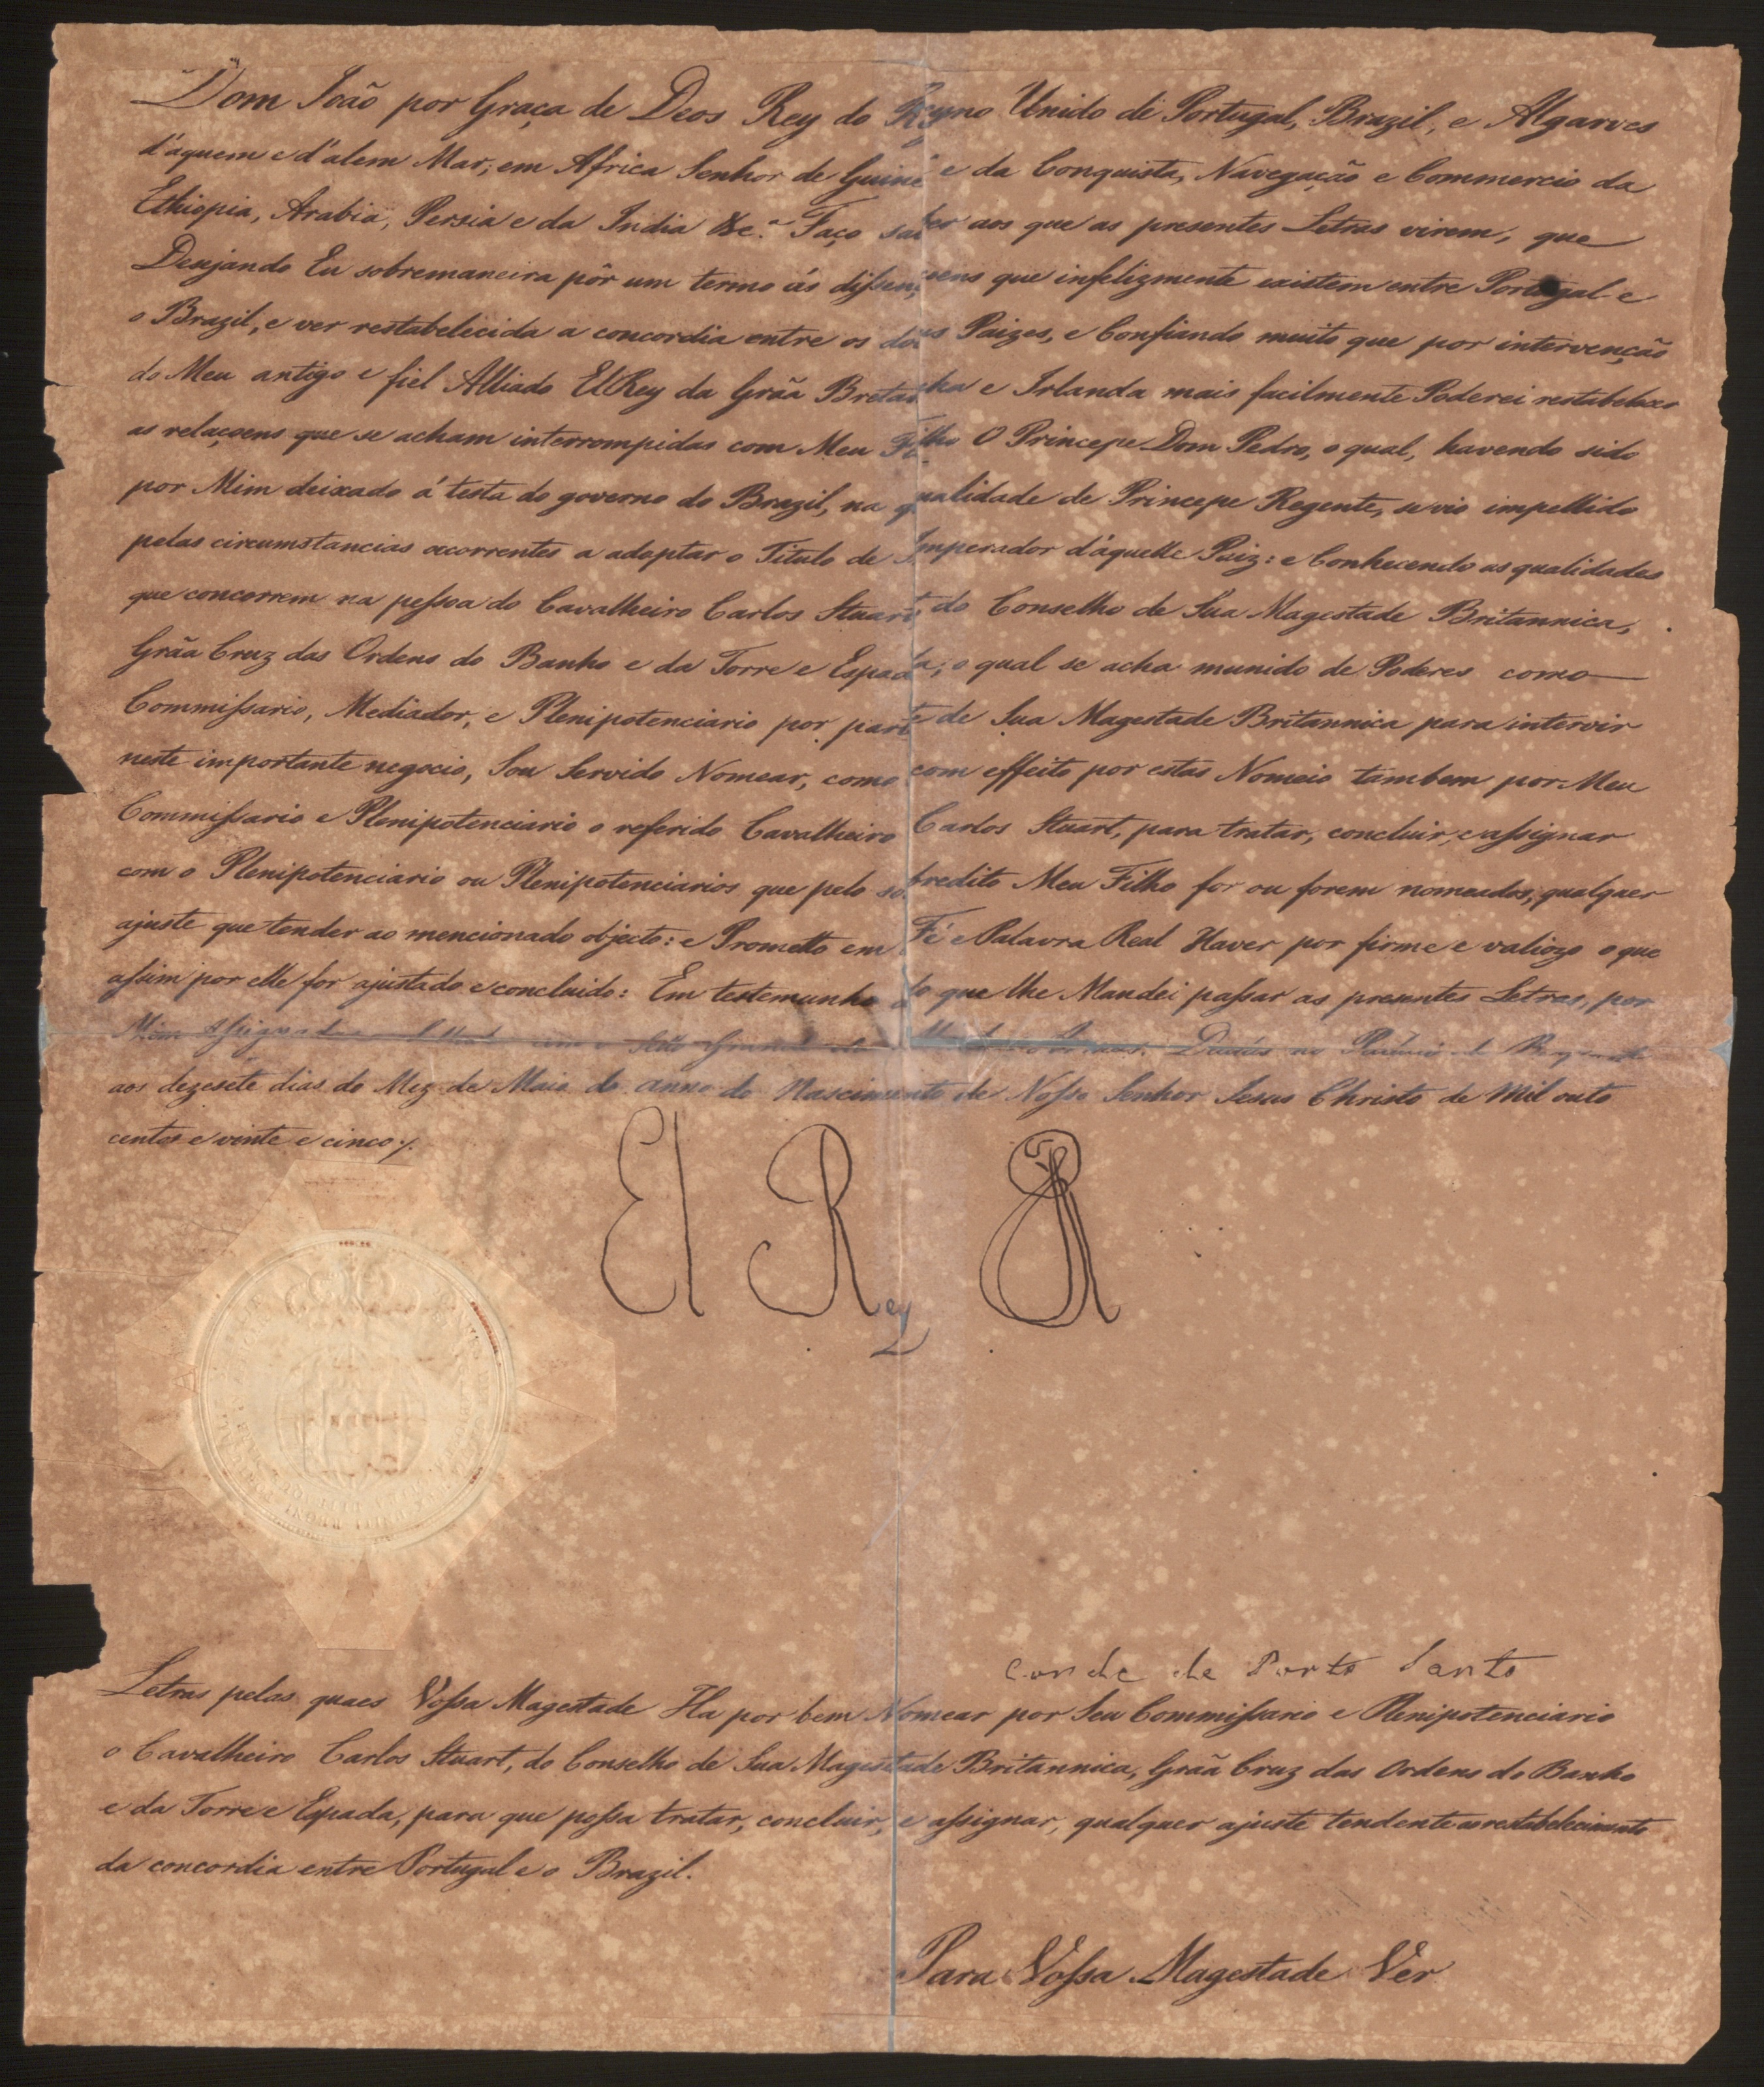 Dom João por Graça de Deos Rey do Reyno Unido de Portugal, Brazil, e Algarves
d'aquem e d'alem Mar, em Africa Senhor de Guiné e da Conquista, Navegação e Commercio da
Ethiopia, Arabia, Persia e da India &c.ª Faço saber aos que as presentes Letras virem, que
Desejando Eu sobremaneira pôr um termo ás dissençoens que infelizmente existem entre Portugal e
o Brazil, e ver restabelecida a concordia entre os dous Paizes, e Confiando muito que por intervenção
do Meu antigo e fiel Alliado ElRey da Grãa Bretanha e Irlanda mais facilmente Poderei restabelecer
as relaçoens que se acham interrompidas com Meu Filho O Princepe Dom Pedro, o qual, havendo sido
por Mim deixado á testa do governo do Brazil, na qualidade de Princepe Regente, se vio impellido
pelas circumstancias occorrentes a adoptar o Titulo de Imperador d'aquelle Paiz: e Conhecendo as qualidades
que concorrem na pessoa do Cavalheiro Carlos Stuart do Conselho de Sua Magestade Britannica,
Grãa Cruz das Ordens do Banho e da Torre e Espada; o qual se acha munido de Poderes como
Commissario, Mediador, e Plenipotenciario por parte de Sua Magestade Britannica para intervir
neste importante negocio, Sou Servido Nomear, como com effeito por estas Nomeio tambem por Meu
Commissario e Plenipotenciario o referido Cavalheiro Carlos Stuart, para tratar, concluir, e assignar
com o Plenipotenciario ou Plenipotenciarios que pelo sobredito Meu Filho for ou forem nomeados, qualquer
ajuste que tender ao mencionado objecto: e Prometto em Fé e Palavra Real Haver por firme e valiozo o que
assim por elle for ajustado e concluido: Em testemunho do que lhe Mandei passar as presentes Letras, por
Mim Assignadas com o Sello Grande Dadas no
aos dezesete dias do Mez de Maio do anno do Nascimento de Nosso Senhor Jesus Christo de Mil outo
centos e vinte e cinco
El Rey
Conde de Porto Santo
Letras pelas quaes Vossa Magestade Ha por bem Nomear por Seu Commissario e Plenipotenciario
o Cavalheiro Carlos Stuart, do Conselho de Sua Magestade Britannica, Grãa Cruz das Ordens do Banho
e da Torre e Espada, para que possa tratar, concluir, e assignar, qualquer ajuste tendente ao restabelecimento
da concordia entre Portugal e o Brazil.
Para Vossa Magestade Ver